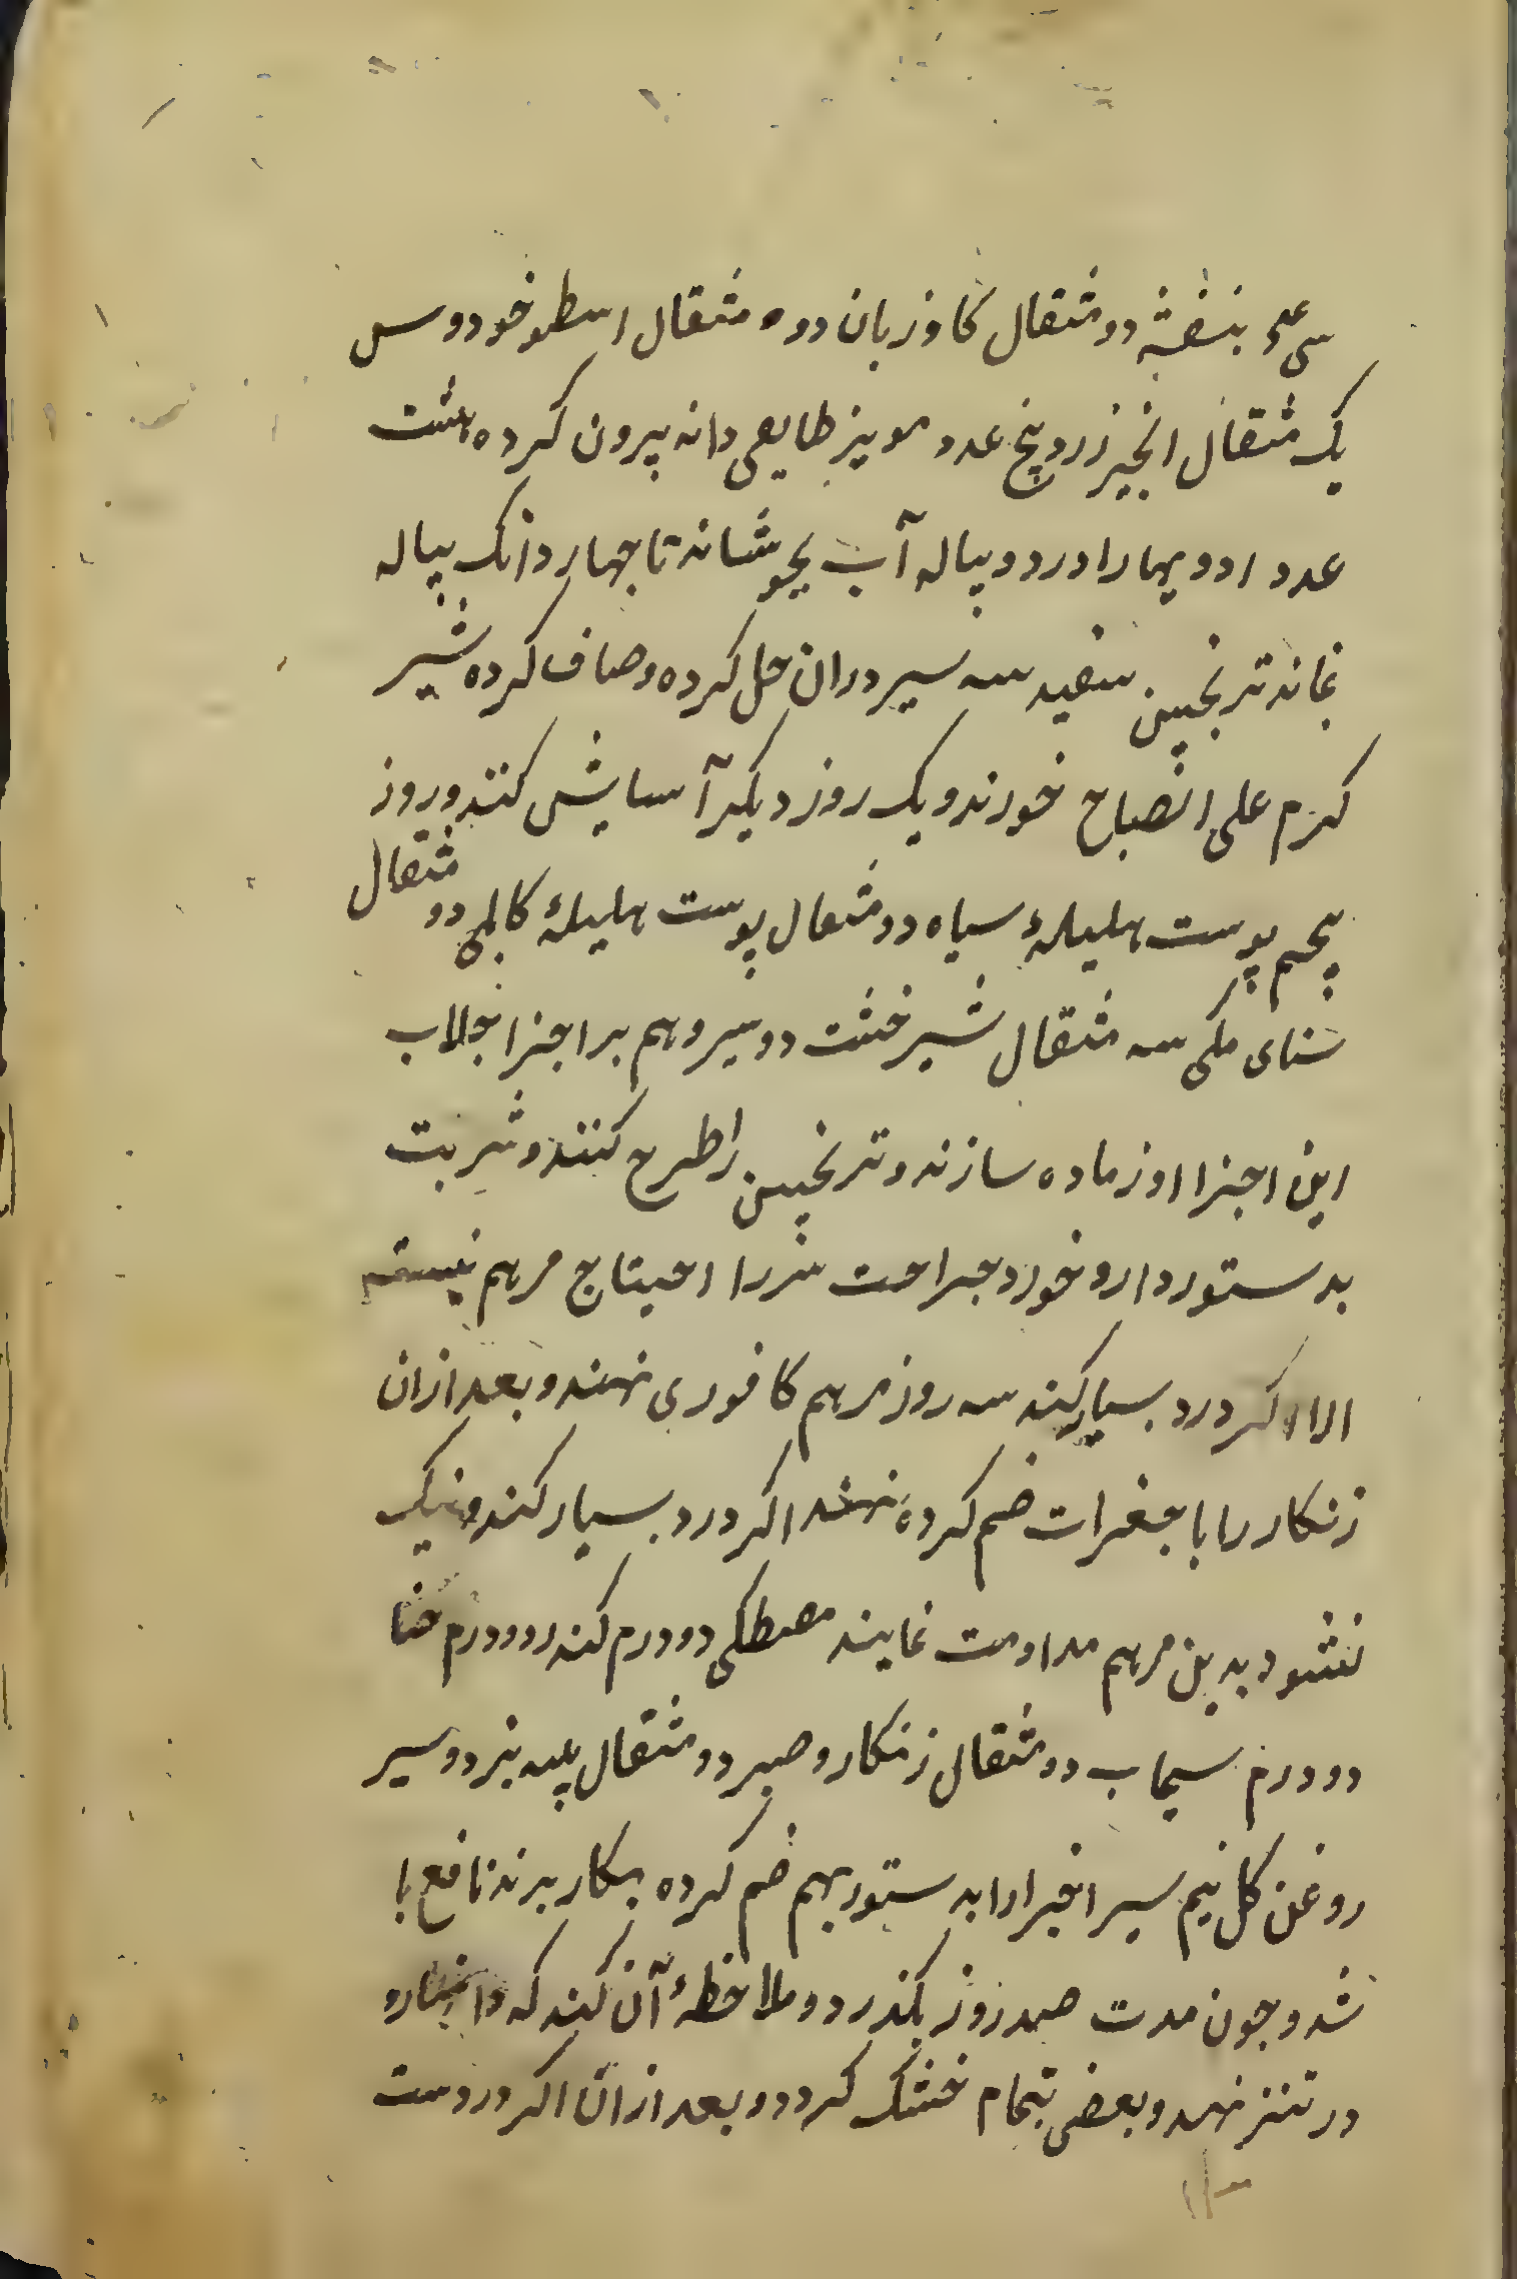 سی عدد بنفشه دو مثقال کاوزبان دو مثقال اسطوخودوس
یک مثقال انجیر زرد پنج عدد مویز طایفی دانه بیرون کرده هشت
عدد ادویهارا در دو پیاله آب بجوشانه تا جهار دانک پیاله
نماند ترنجبین سفید سه سیر دران حل کرده وصاف کرده شیر
کرم علی الصباح خورند و یک روز دیکر آسایش کنند و روز
پنجم پوست هلیلهٔ سیاه دو مثقال پوست هلیلهٔ کابلی دو مثقال
سنای مکی سه مثقال شیرخشت دو سیر وهم بر اجزا جلاب
این اجزا او زماده سازند و ترنجبین را طرح کنند و شربت
بدستور دارو خورد جراحت شررا احتیاج مرهم نیست
الا اکر درد بسیار کند سه روز مرهم کافوری نهند و بعد ازان
زنکار را با جغرات ضم کرده نهند اکر درد بسیار کند و نیک
نشود بدین مرهم مداومت نمایند مصطکی دو درم کندر دو درم حنا
دو درم سیماب دو مثقال زنکار و صبر دو مثقال پیه بز دو سیر
روغن کل نیم سیر اخبرارا بدستور بهم ضم کرده بکار برند نافع با
شد و جون مدت صد روز بکذرد و ملاحظهٔ آن کند که
در تنز نهد و بعضی بتمام خشک کردد و بعد ازان اکر در دست